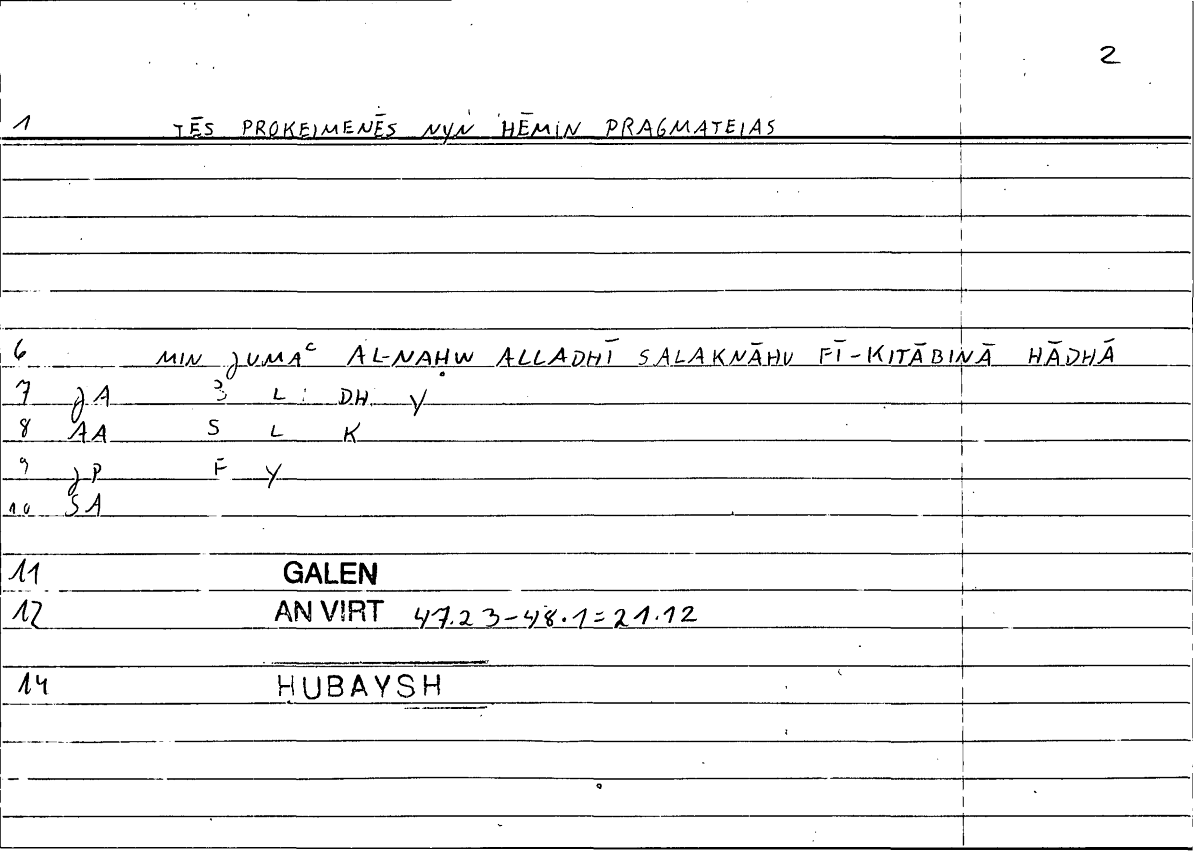 2
1 TĒS PROKEIMENĒS NYN HĒMIN PRAGMATEIAS
6 MIN JUMAᶜ AL-NAḤW ALLADHĪ SALAKNĀHU FĪ-KITĀBINĀ HĀDHĀ
7 JA 3 L DH Y
8 AA S L K
9 JP F Y
10 SA
11 GALEN
12 AN VIRT 47.23-48.1=21.12
14 HUBAYSH